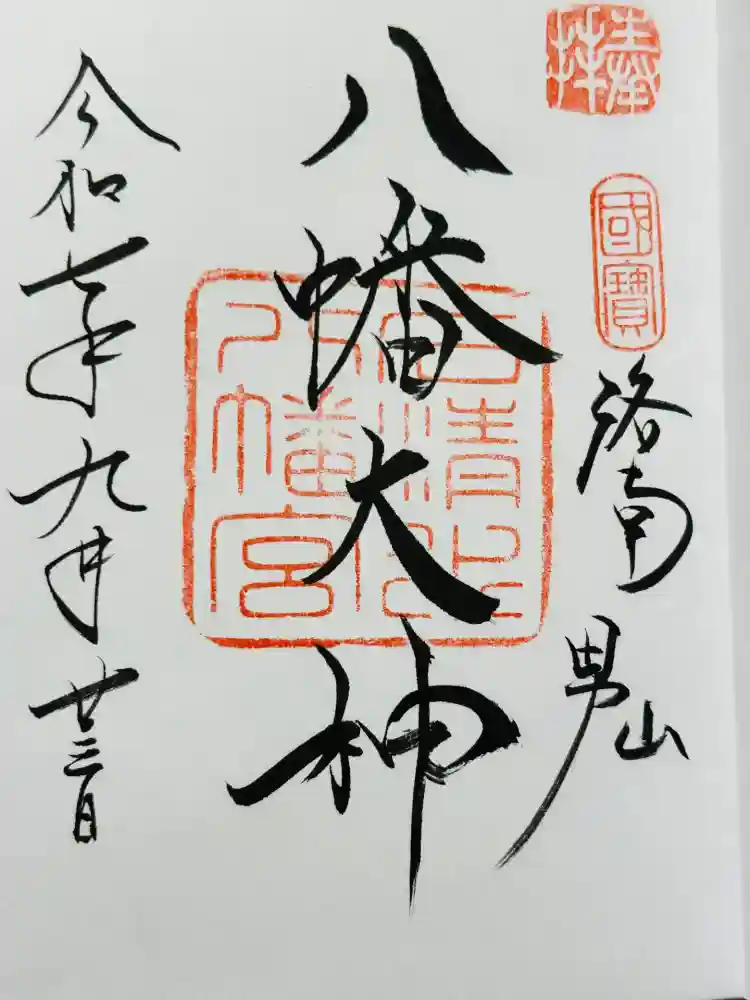 奉拝
國寶
洛南
男山
八幡大神
石清水
八幡宮
令和七年九月廿三日